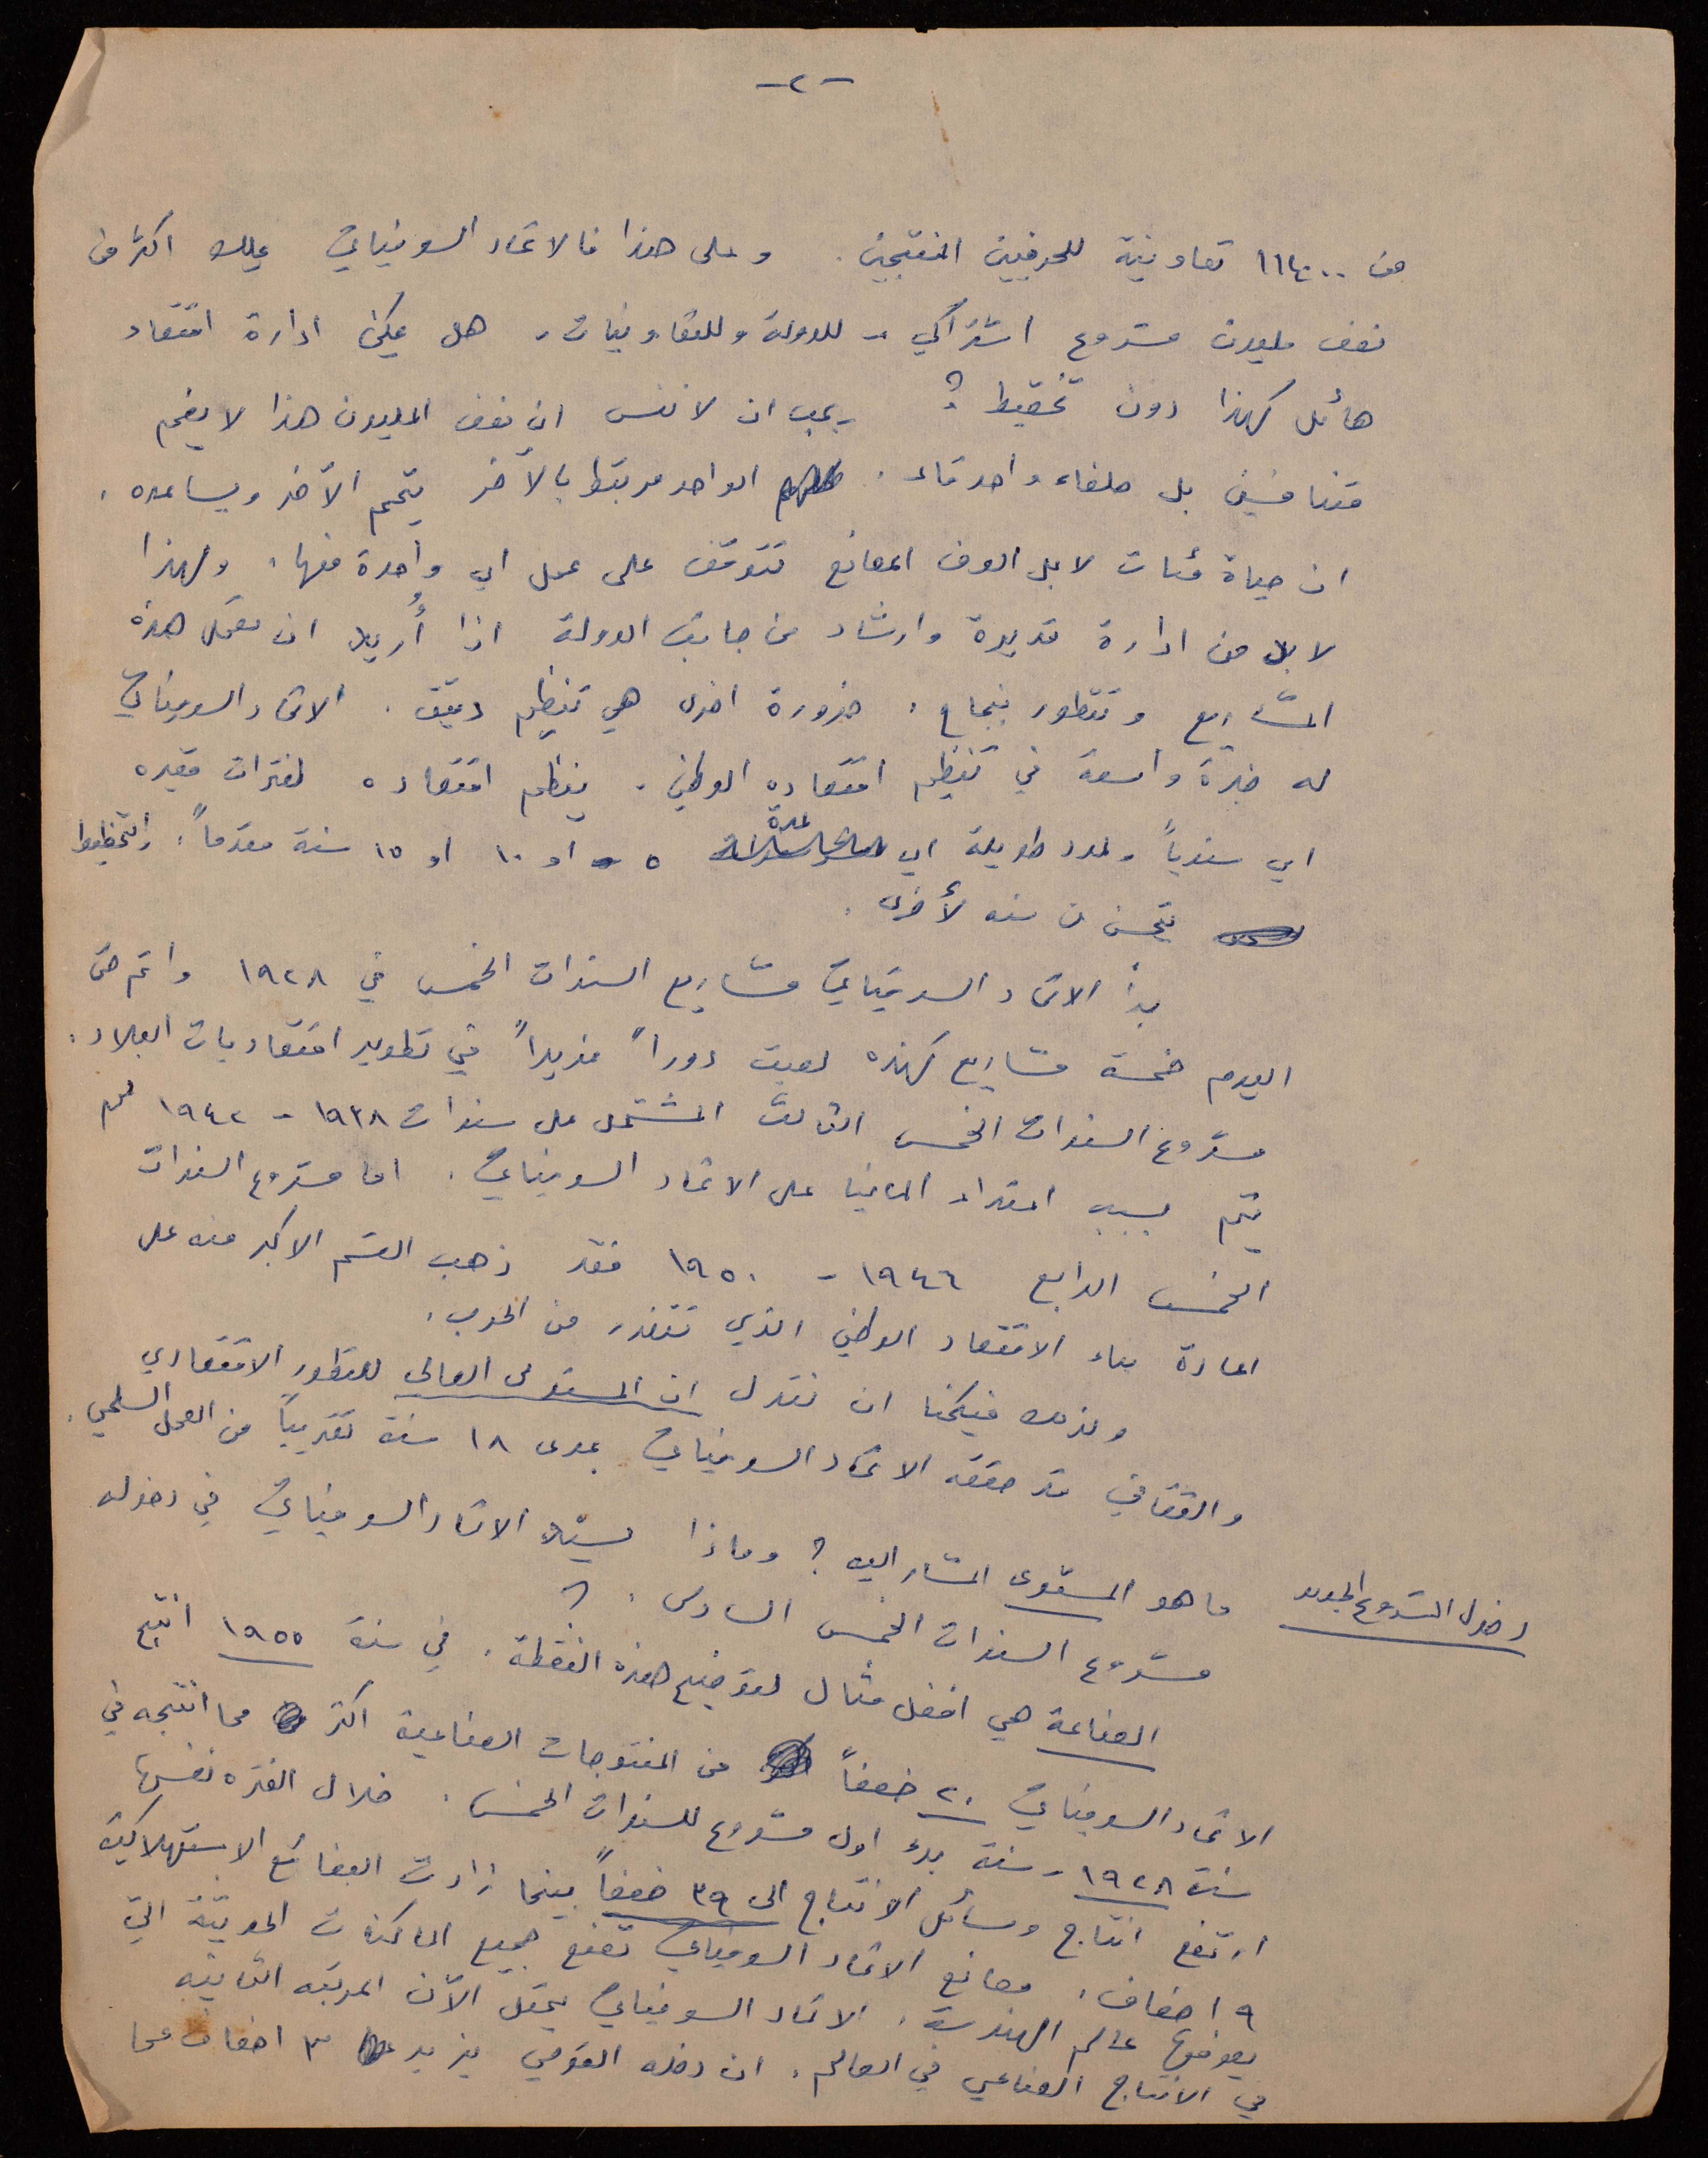 -٢-
من ١١٤٠٠٠ تعاونية للحرفيين المنتجين. وعلى هذا فالاتحاد السوفياتي يملك اكثر من
نصف مليون مشروع اشتراكي - للدولة وللتعاونيات - هل يمكن ادارة اقتصاد
هائل كهذا دون تخطيط ؟ يجب ان لا ننس ان نصف المليون هذا لا يضم
متنافسين بل حلفاء واصدقاء. الواحد مربتط بالآخر يتمم الآخر ويساعده.
ان حياة مئات لا بل الوف المصانع تتوقف على عمل اي واحدة منها. ولهذا
لا بد من ادارة قديرة وارشاد من جانب الدولة اذا أُريد ان تعمل هذه
المشاريع وتتطور بنجاح. ضرورة اخرى هي تنظيم دقيق. الاتحاد السوفياتي
له خبرة واسعة في تنظيم اقتصاده الوطني. ينظم اقتصاده لفترات قصيره
اي سنوياً ولمدد طويلة اي لمدة ٥ او ١٠ او ١٥ سنة مقدماً. والتخطيط
يتحسن من سنه لأخرى.
بدأ الاتحاد السوفياتي مشاريع السنوات الخمس في ١٩٢٨ واتم حتى
اليوم خمسة مشاريع كهذه لعبت دوراً فريداً في تطوير اقتصاديات البلاد.
مشروع السنوات الخمس الثالث المشتمل على سنوات ١٩٣٨ - ١٩٤٢ لم
يتم بسبب اعتداء المانيا على الاتحاد السوفياتي. اما مشروع السنوات
الخمس الرابع ١٩٤٦ - ١٩٥٠ فقد ذهب القسم الاكبر منه على
اعادة بناء الاقتصاد الوطني الذي تضرر من الحرب.
ولذلك فيمكننا ان نقول ان المستوى العالي للتطور الاقتصادي
والثقافي قد حققه الاتحاد السوفياتي بمدى ١٨ سنة تقريباً من العمل السلمي.
دخول المشروع الجديد ما هو المستوى المشار اليه ؟ وماذا الاتحاد السوفياتي في دخوله
مشروع السنوات الخمس السادس. ؟
الصناعة هي افضل مثال لتوضيح هذه النقطة. في سنة ١٩٥٥ انتج
الاتحاد السوفياتي ٢٠ ضعفاً من المنتوجات الصناعية اكثر مما انتجه في
سنة ١٩٢٨ - سنة بدء اول مشروع للسنوات الخمس. خلال الفتره نفسها
ارتفع انتاج وسائل الانتاج الى ٣٩ ضعفاً بينما زادت البضائع الاستهلاكية
٩ اضعاف. مصانع الاتحاد السوفياتي تصنع جميع الماكنات الحديثة التي
يعرفها عالم الهندسة. الاتحاد السوفياتي يحتل الآن المرتبه الثانيه
في الانتاج الصناعي في العالم. ان دخله القومي يزيد ٣ اضعاف عما